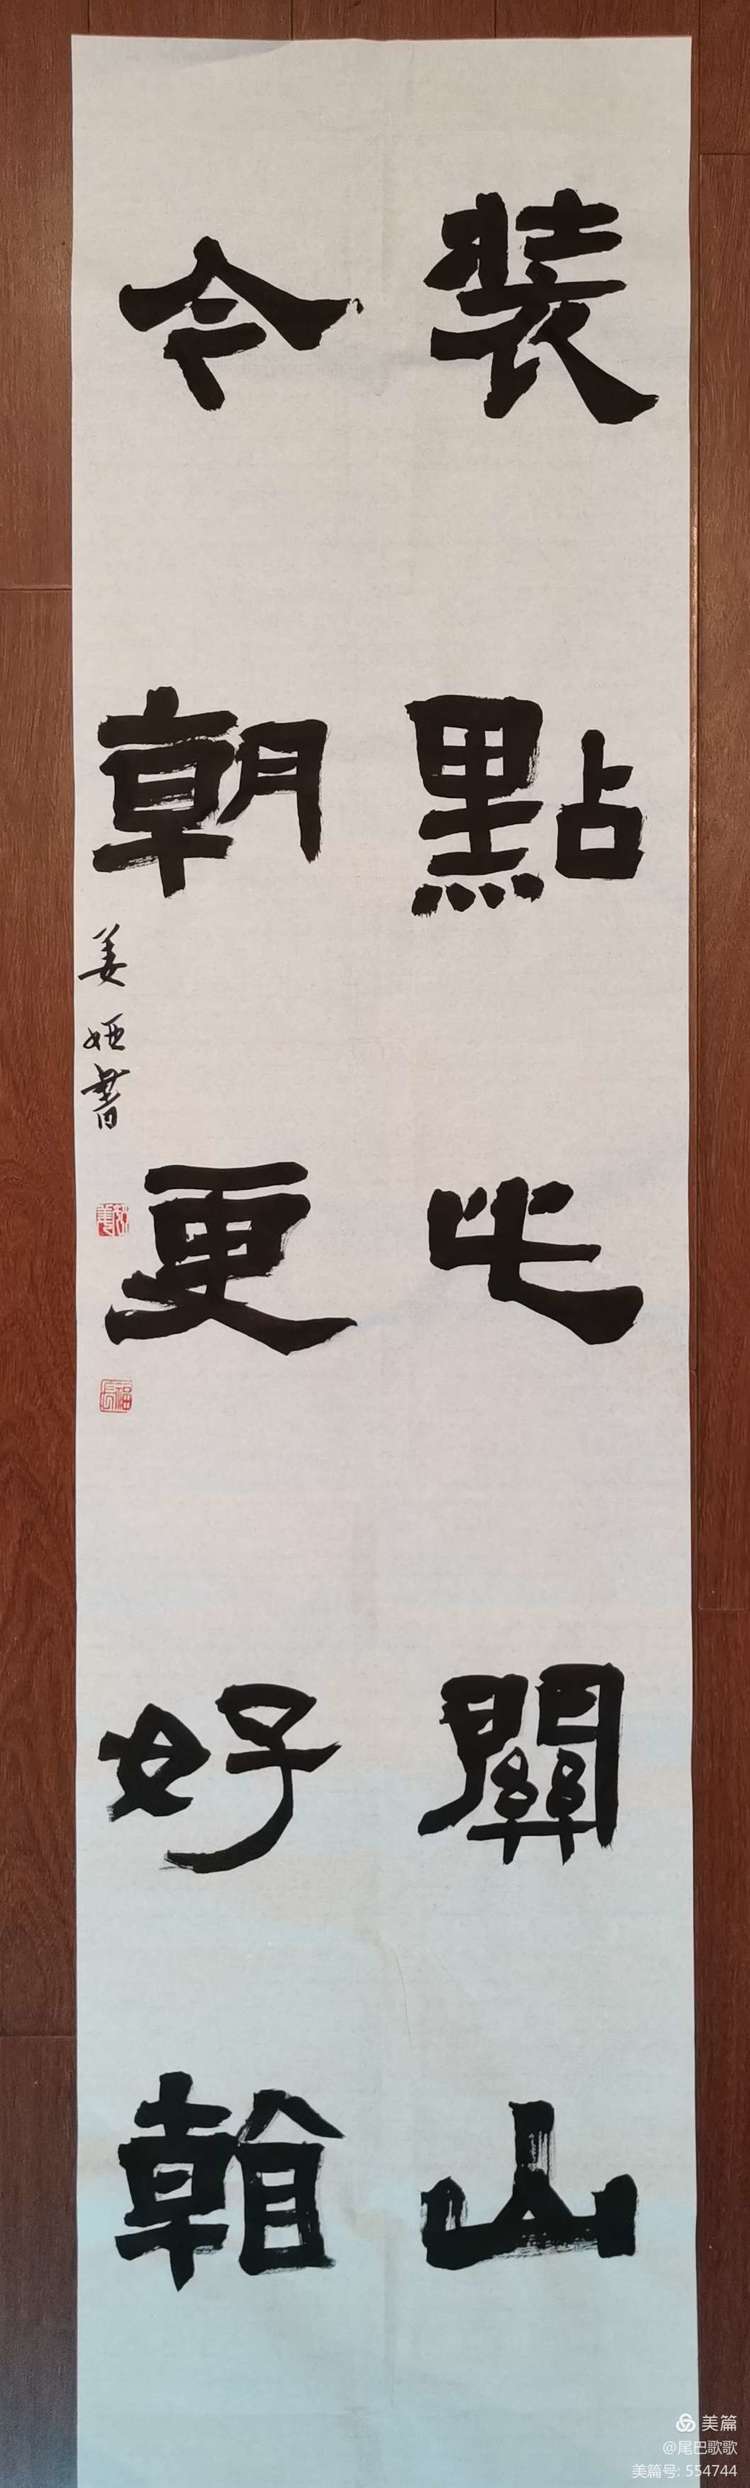 装點此關山
今朝更好看
姜娅書
美篇
@尾巴歌歌
美篇号: 554744